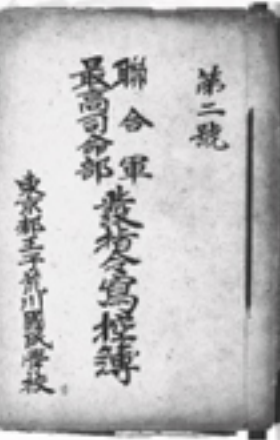 第二號
聯合軍
最高司令部
發指令寫控簿
東京都王子荒川國民學校